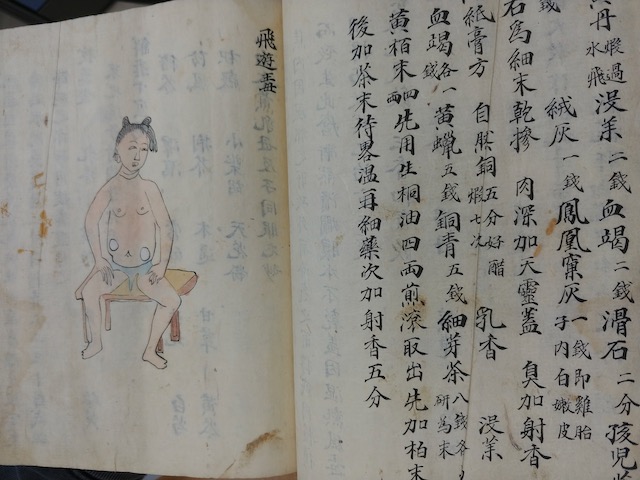 丹 煆過水飛 沒薬 二錢 血竭 二錢 滑石 二分 孩兒
錢 絨灰 一錢 鳳凰窠灰 一錢即雞胎子內白嫩皮
石為細末乾摻 肉深加天靈蓋 臭加射香
紙膏方 自肰銅 五分好醋煆七次 乳香 沒薬
血竭 各一錢 黃蠟 五錢 銅青 五錢 細芽茶 八錢各研為末
黃栢末 四兩 先用生桐油四兩煎滾取出先加柏末
後加茶末待畧溫再細藥次加射香五分
飛遊毒